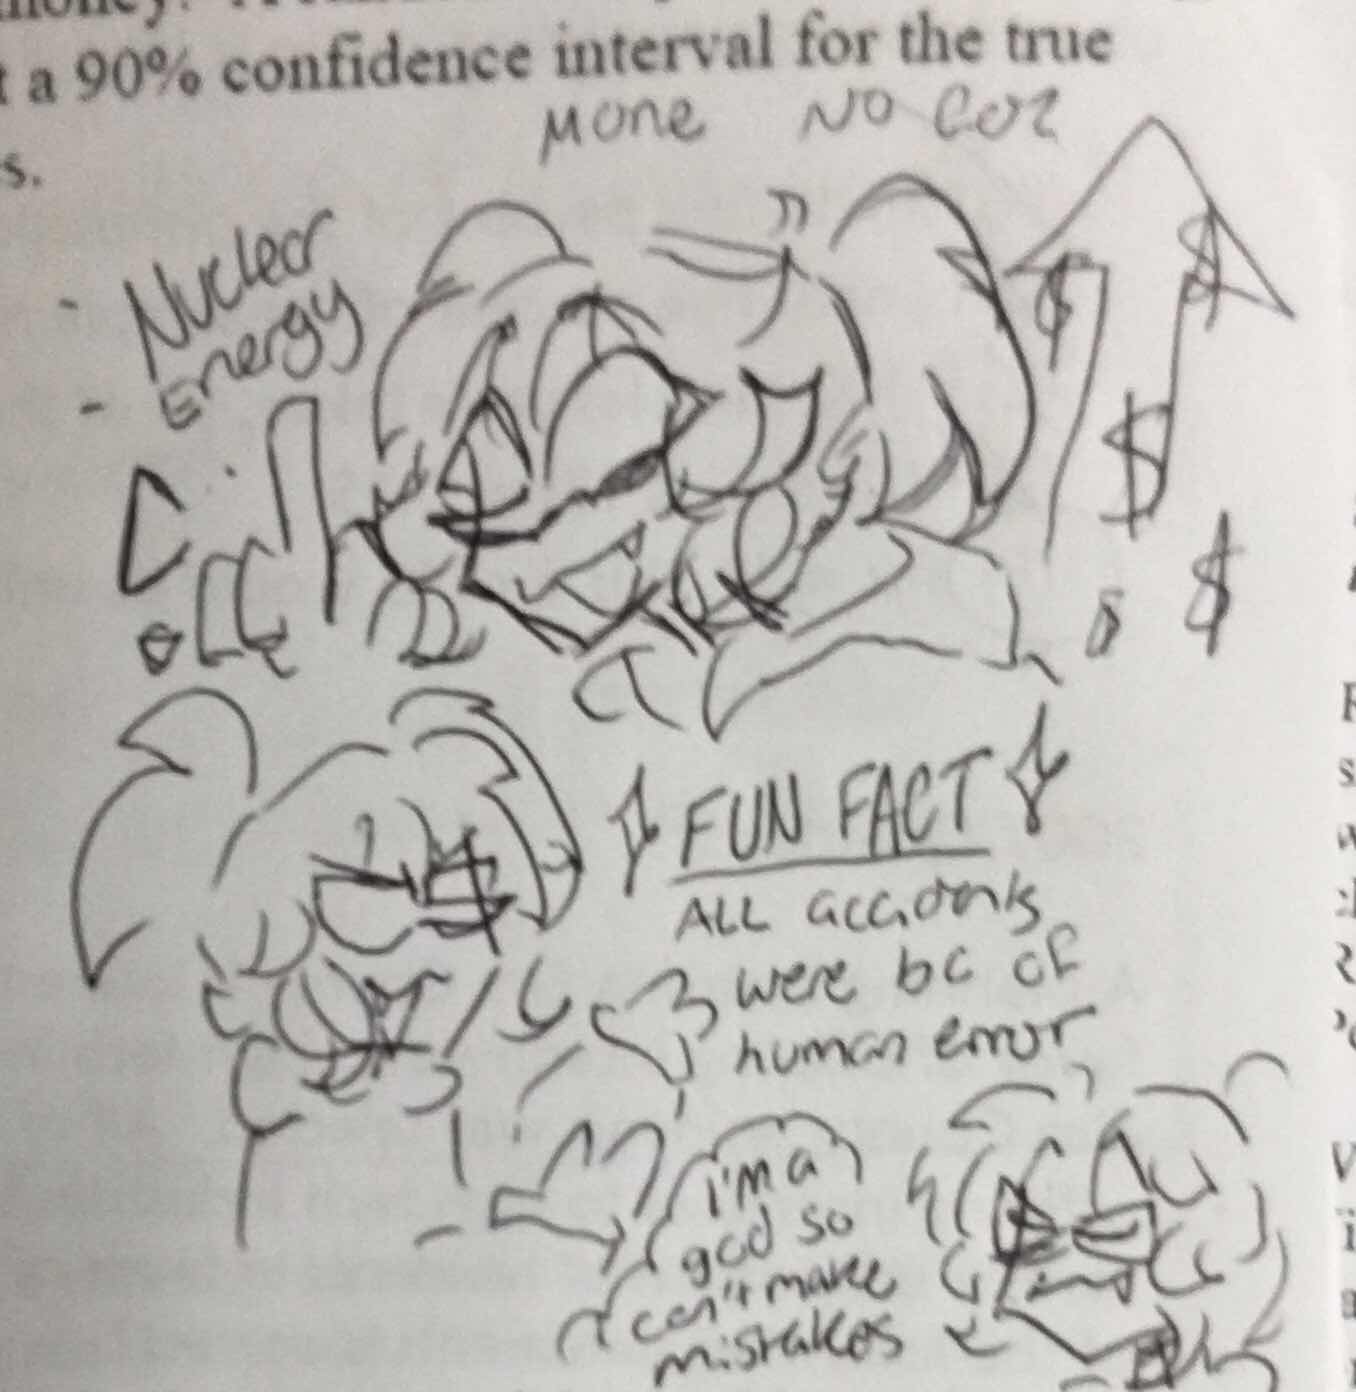 money?
t a 90% confidence interval for the true
s.
MONE NO CO2
- Nuclear
- Energy
$ $
$
$
FUN FACT
ALL accidents
were bc of
human error
i'm a
god so
can't make
mistakes